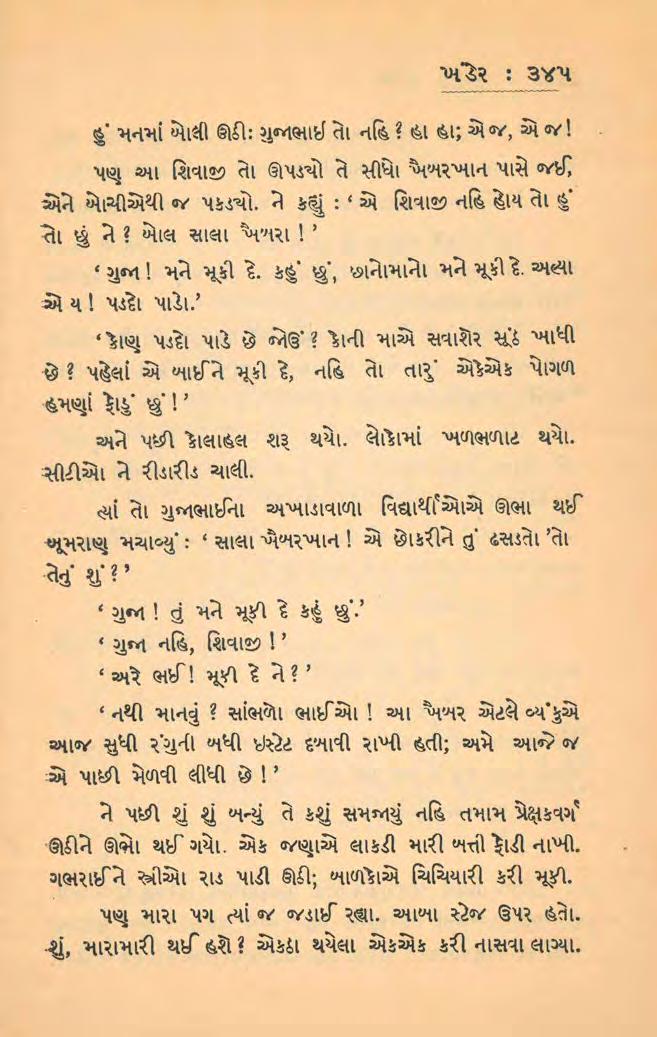 ખંડેર : ૩૪૫
હું મનમાં બોલી ઊઠી: ગુજાભાઈ તો નહિ ? હા હા; એ જ, એ જ!
પણ આ શિવાજી તો ઊપડ્યો તે સીધો ખૈબરખાન પાસે જઈ,
એને બોચીએથી જ પકડ્યો. ને કહ્યું : ‘ એ શિવાજી નહિ હોય તો હું
તો છું ને ? બોલ સાલા ખૈબરા ! ’
‘ ગુજા ! મને મૂકી દે. કહું છું, છાનોમાનો મને મૂકી દે. અલ્યા
એ ય ! પડદો પાડો.’
‘ કોણ પડદો પાડે છે જોઉં ? કોની માએ સવાશેર સૂંઠ ખાધી
છે ? પહેલાં એ બાઈને મૂકી દે, નહિ તો તારું એકેએક પોગળ
હમણાં ફોડું છું ! ’
અને પછી કોલાહલ શરૂ થયો. લોકોમાં ખળભળાટ થયો.
સીટીઓ ને રીડારીડ ચાલી.
ત્યાં તો ગુજાભાઈના અખાડાવાળા વિદ્યાર્થીઓએ ઊભા થઈ
બૂમરાણ મચાવ્યું : ‘ સાલા ખૈબરખાન ! એ છોકરીને તું ઢસડતો ’તો
તેનું શું ? ’
‘ ગુજા ! તું મને મૂકી દે કહું છું.’
‘ ગુજા નહિ, શિવાજી ! ’
‘ અરે ભઈ ! મૂકી દે ને ? ’
‘ નથી માનવું ? સાંભળો ભાઈઓ ! આ ખૈબર એટલે વ્યંકુએ
આજ સુધી રંગુની બધી ઇસ્ટેટ દબાવી રાખી હતી; અમે આજે જ
એ પાછી મેળવી લીધી છે ! ’
ને પછી શું શું બન્યું તે કશું સમજાયું નહિ તમામ પ્રેક્ષકવર્ગ
ઊઠીને ઊભો થઈ ગયો. એક જણાએ લાકડી મારી બત્તી ફોડી નાખી.
ગભરાઈને સ્ત્રીઓ રાડ પાડી ઊઠી; બાળકોએ ચિચિયારી કરી મૂકી.
પણ મારા પગ ત્યાં જ જડાઈ રહ્યા. આબા સ્ટેજ ઉપર હતો.
શું, મારામારી થઈ હશે ? એકઠા થયેલા એકએક કરી નાસવા લાગ્યા.